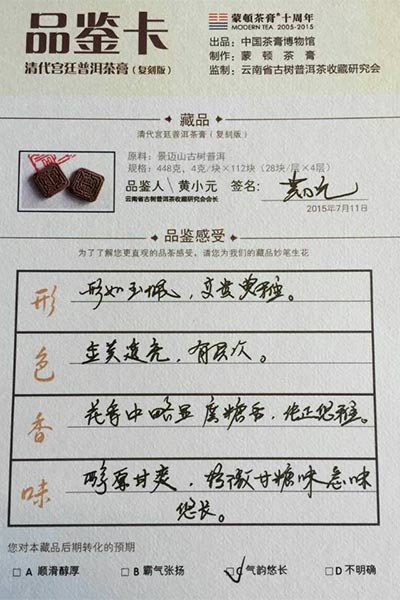 品鉴卡
清代宫廷普洱茶膏（复刻版）
蒙顿茶膏®十周年
MODERN TEA. 2005-2015
出品：中国茶膏博物馆
制作：蒙顿茶膏
监制：云南省古树普洱茶收藏研究会
藏品
清代宫廷普洱茶膏（复刻版）
原料：景迈山古树普洱
规格：448克，4克/块×112块（28块/层×4层）
品鉴人\黄小元 签名：
云南省古树普洱茶收藏研究会会长
2015年7月11日
品鉴感受
为了了解您更直观的品茶感受，请您为我们的藏品妙笔生花
形
形如玉佩，高贵典雅。
色
金黄透亮，有层次。
香
花香中略显蔗糖香，纯正悠雅。
味
醇厚甘爽，稍微甘糖味 韵味
悠长。
您对本藏品后期转化的预期
□A 顺滑醇厚 □B 霸气张扬 □C 气韵悠长 □D 不明确